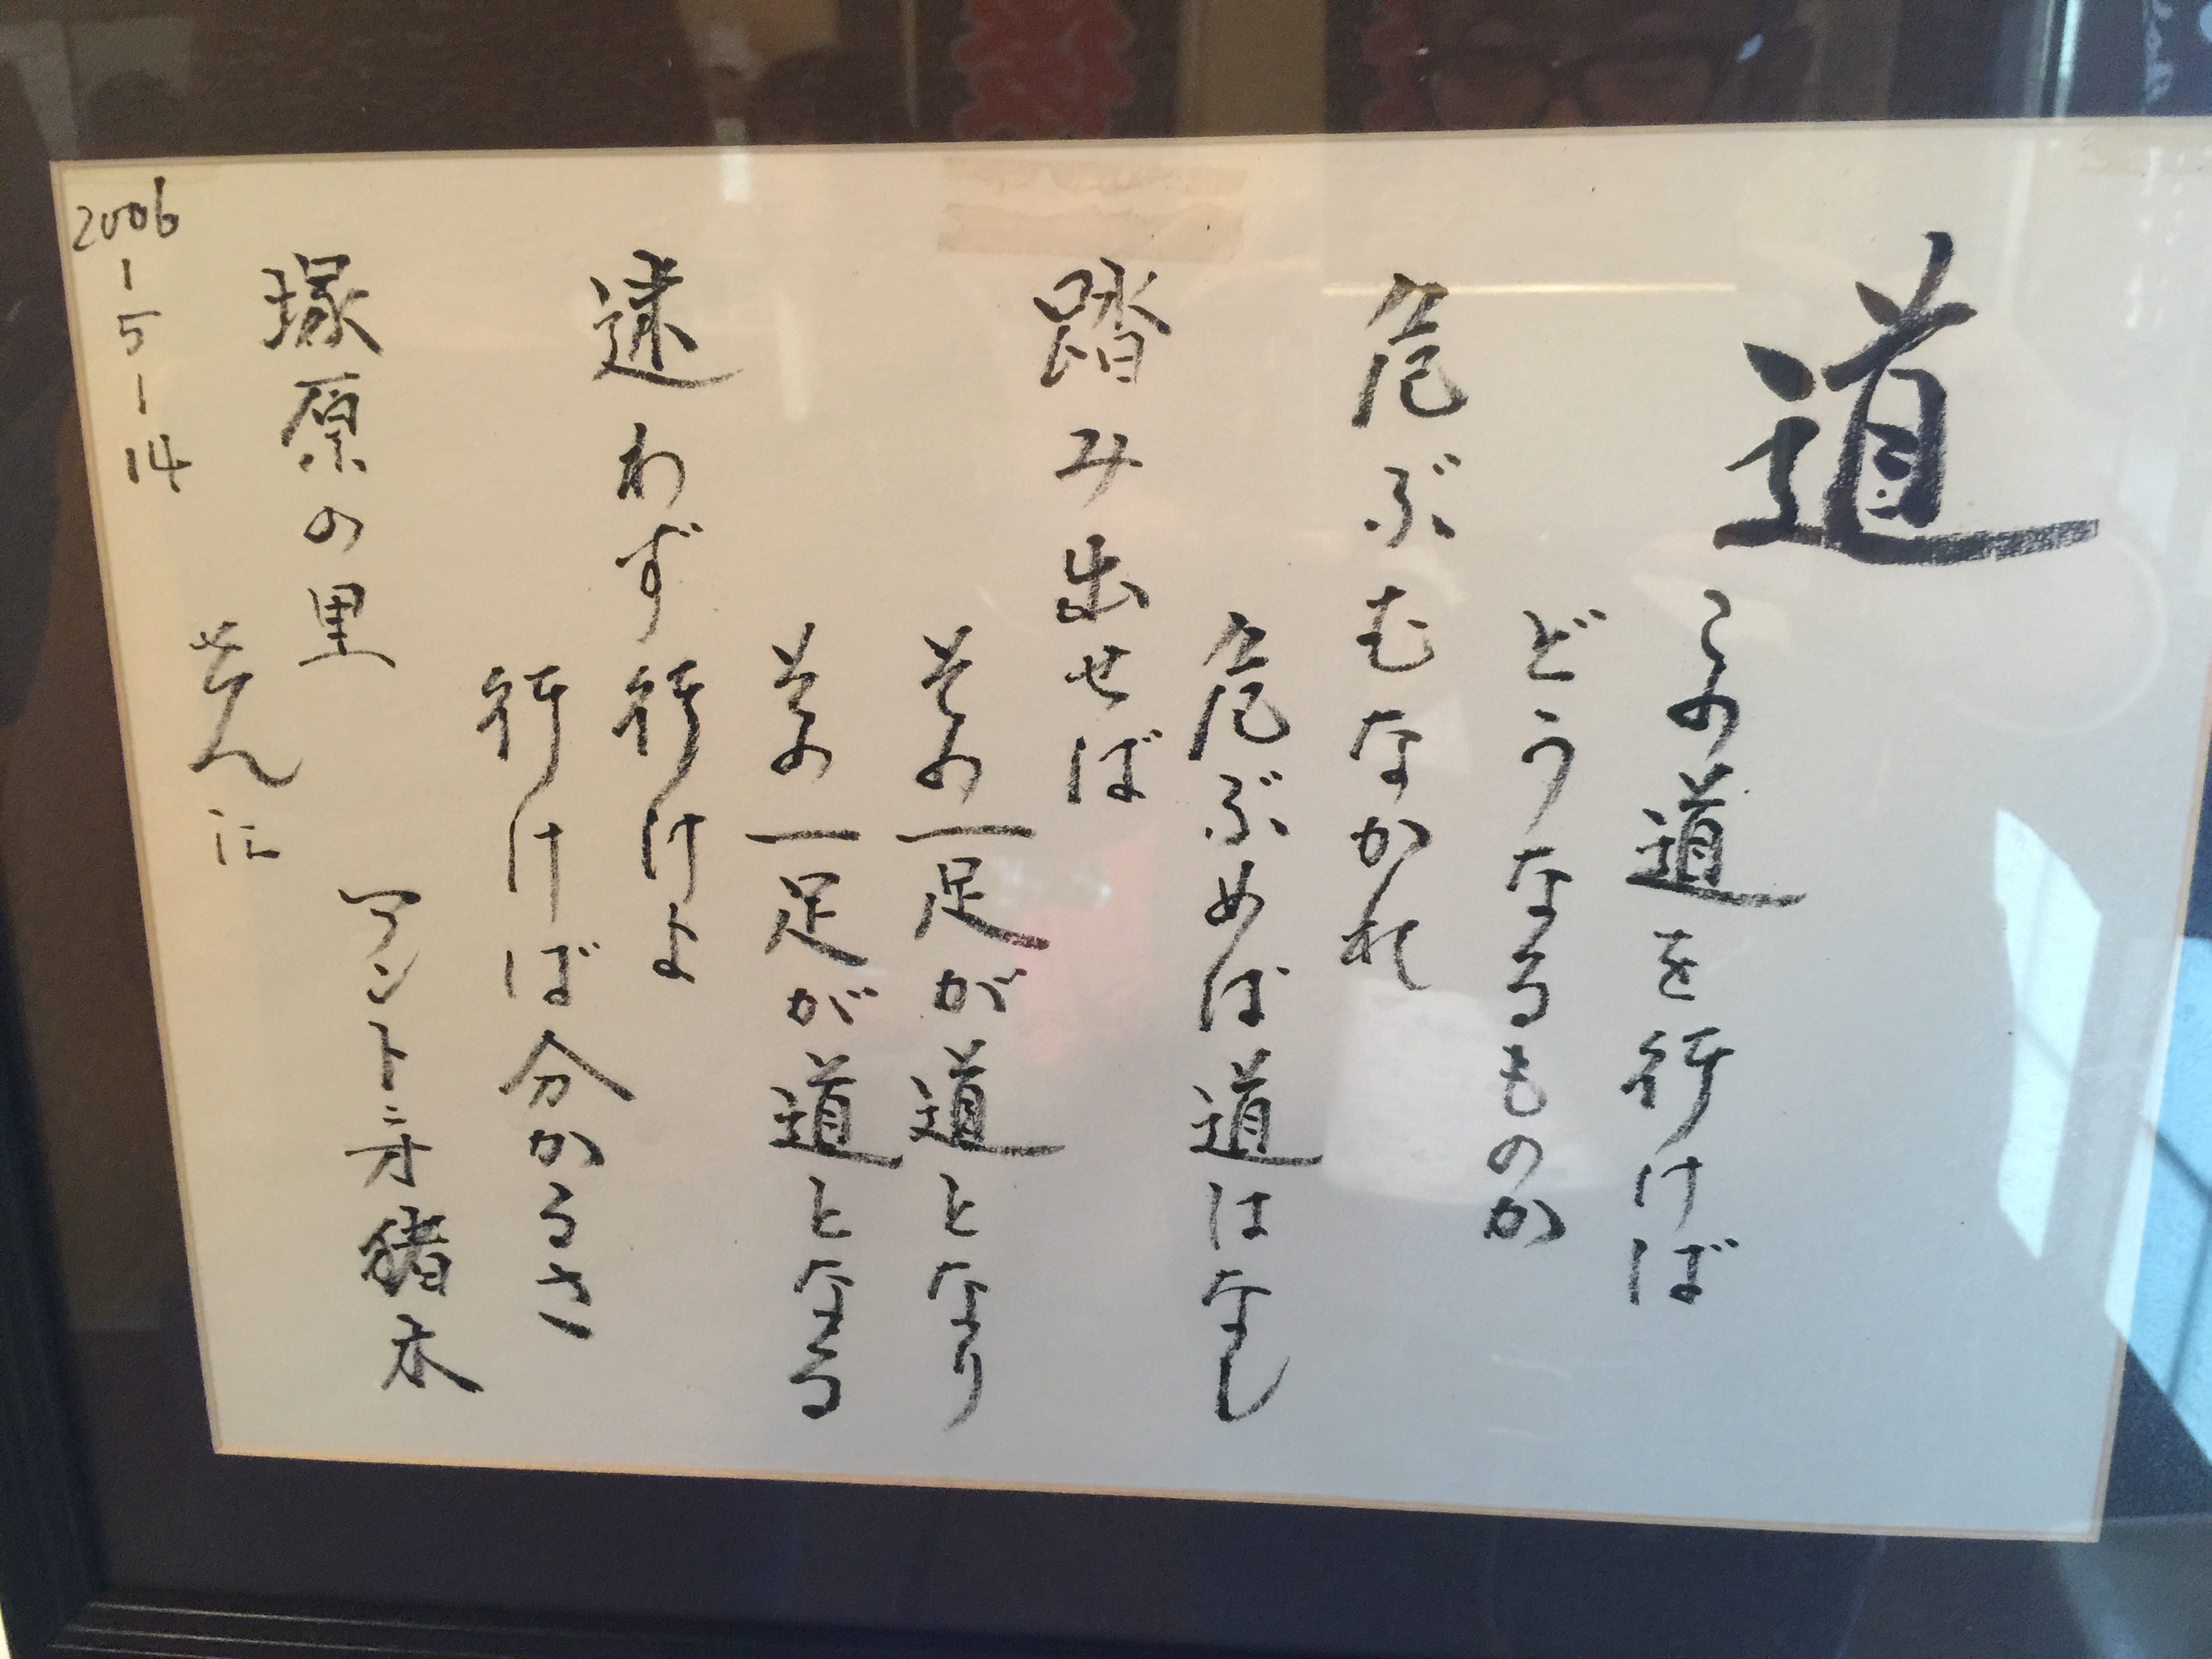 道
この道を行けば
どうなるものか
危ぶむなかれ
危ぶめば道はなし
踏み出せば
その一足が道となり
その一足が道となる
迷わず行けよ
行けば分かるさ
アントニオ猪木
塚原の里
2006-5-14